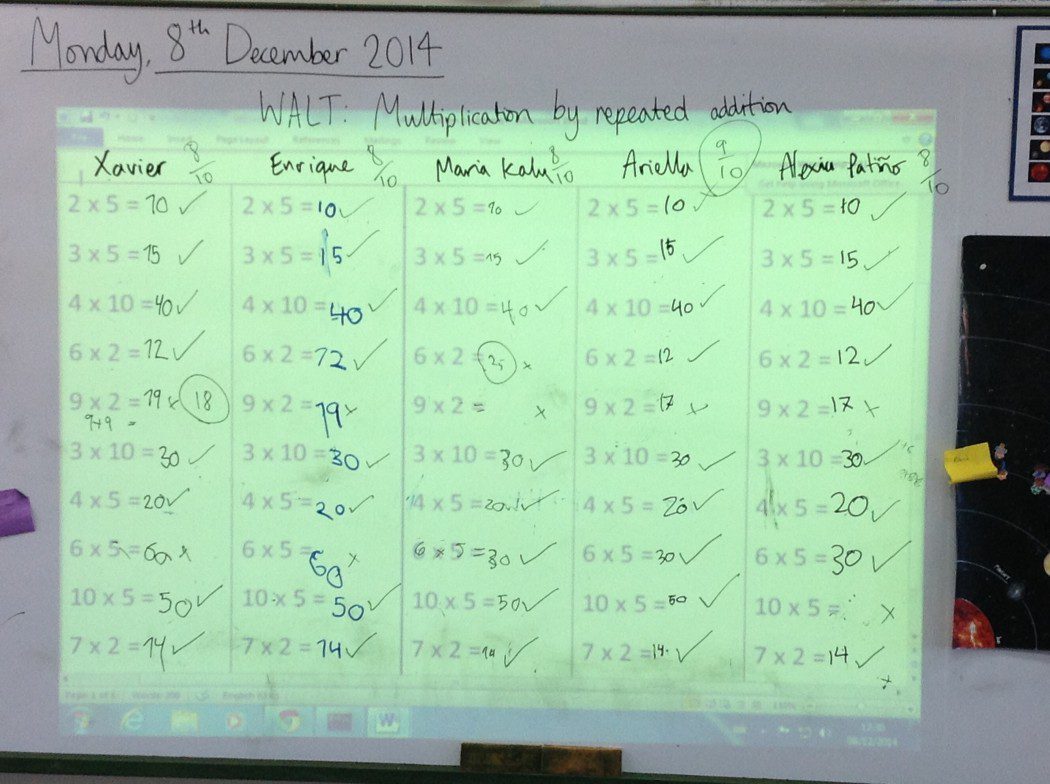 Monday, 8th December 2014
WALT: Multiplication by repeated addition
Xavier 8/10 Enrique 8/10 Maria Kalu 8/10 Ariella 9/10 Alexia Patiño 8/10
2 x 5 = 10 ✓ 2 x 5 = 10 ✓ 2 x 5 = 10 ✓ 2 x 5 = 10 ✓ 2 x 5 = 10 ✓
3 x 5 = 15 ✓ 3 x 5 = 15 ✓ 3 x 5 = 15 ✓ 3 x 5 = 15 ✓ 3 x 5 = 15 ✓
4 x 10 = 40 ✓ 4 x 10 = 40 ✓ 4 x 10 = 40 ✓ 4 x 10 = 40 ✓ 4 x 10 = 40 ✓
6 x 2 = 12 ✓ 6 x 2 = 12 ✓ 6 x 2 = x 6 x 2 = 12 ✓ 6 x 2 = 12 ✓
9 x 2 = 19 x 18 9 x 2 = 19 x 9 x 2 = x 9 x 2 = 17 x 9 x 2 = 17 x
9+9 =
3 x 10 = 30 ✓ 3 x 10 = 30 ✓ 3 x 10 = 30 ✓ 3 x 10 = 30 ✓ 3 x 10 = 30 ✓
4 x 5 = 20 ✓ 4 x 5 = 20 ✓ 4 x 5 = 20 ✓ 4 x 5 = 20 ✓ 4 x 5 = 20 ✓
6 x 5 = 60 x 6 x 5 = 60 x 6 x 5 = 30 ✓ 6 x 5 = 30 ✓ 6 x 5 = 30 ✓
10 x 5 = 50 ✓ 10 x 5 = 50 ✓ 10 x 5 = 50 ✓ 10 x 5 = 50 ✓ 10 x 5 = x
7 x 2 = 14 ✓ 7 x 2 = 14 ✓ 7 x 2 = 14 ✓ 7 x 2 = 14 ✓ 7 x 2 = 14 ✓
x